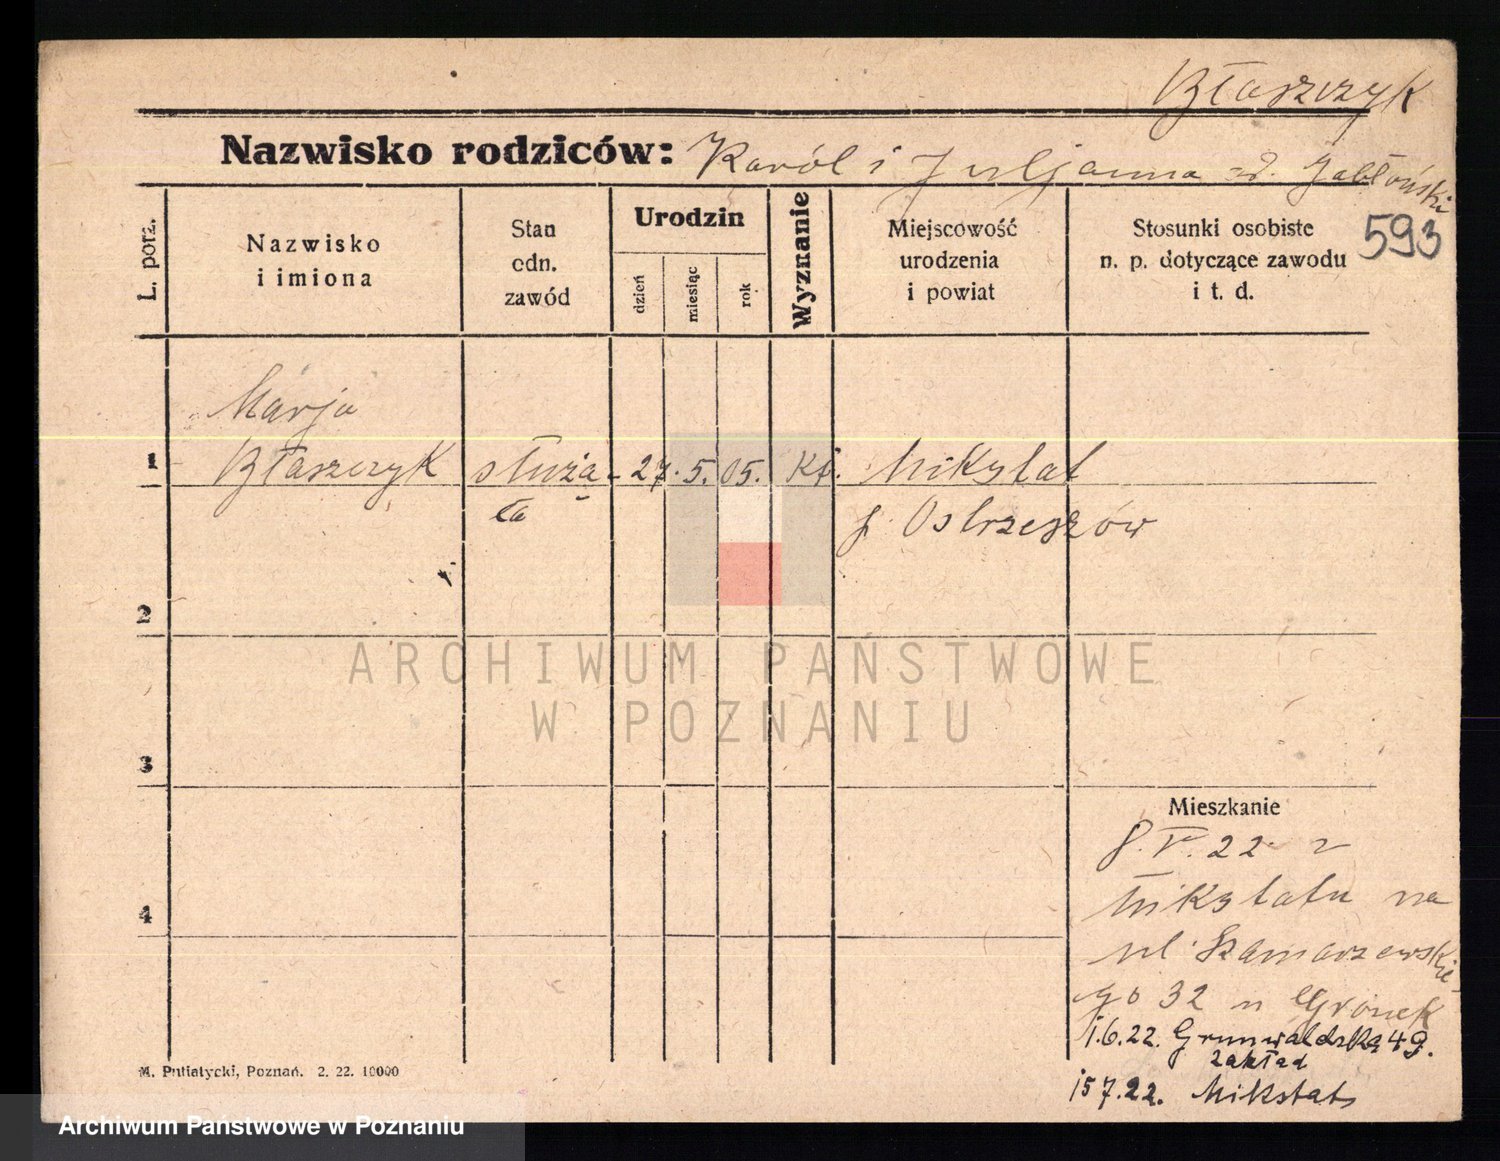 Błaszczyk
Nazwisko rodziców: Karól i Juljanna zd. Jabłoński
593
L. porz.
Nazwisko
i imiona
Stan
edn.
zawód
Urodzin
dzień
miesiąc
rok
Wyznanie
Miejscowość
urodzenia
i powiat
Stosunki osobiste
n. p. dotyczące zawodu
i t. d.
1
Marja
Błaszczyk
służą-
ca
27. 5. 05. Kt.
Mikstat
p. Ostrzeszów
2
3
4
ARCHIWUM PAŃSTWOWE
W POZNANIU
Mieszkanie
8.V.22 z
Mikstatu na
ul. Szamarzewskie-
go 32 u Gronek
1.6.22. Grunwaldzka 49.
zakład
15 7.22. Mikstat
M. Putiatycki, Poznań. 2. 22. 10000
Archiwum Państwowe w Poznaniu